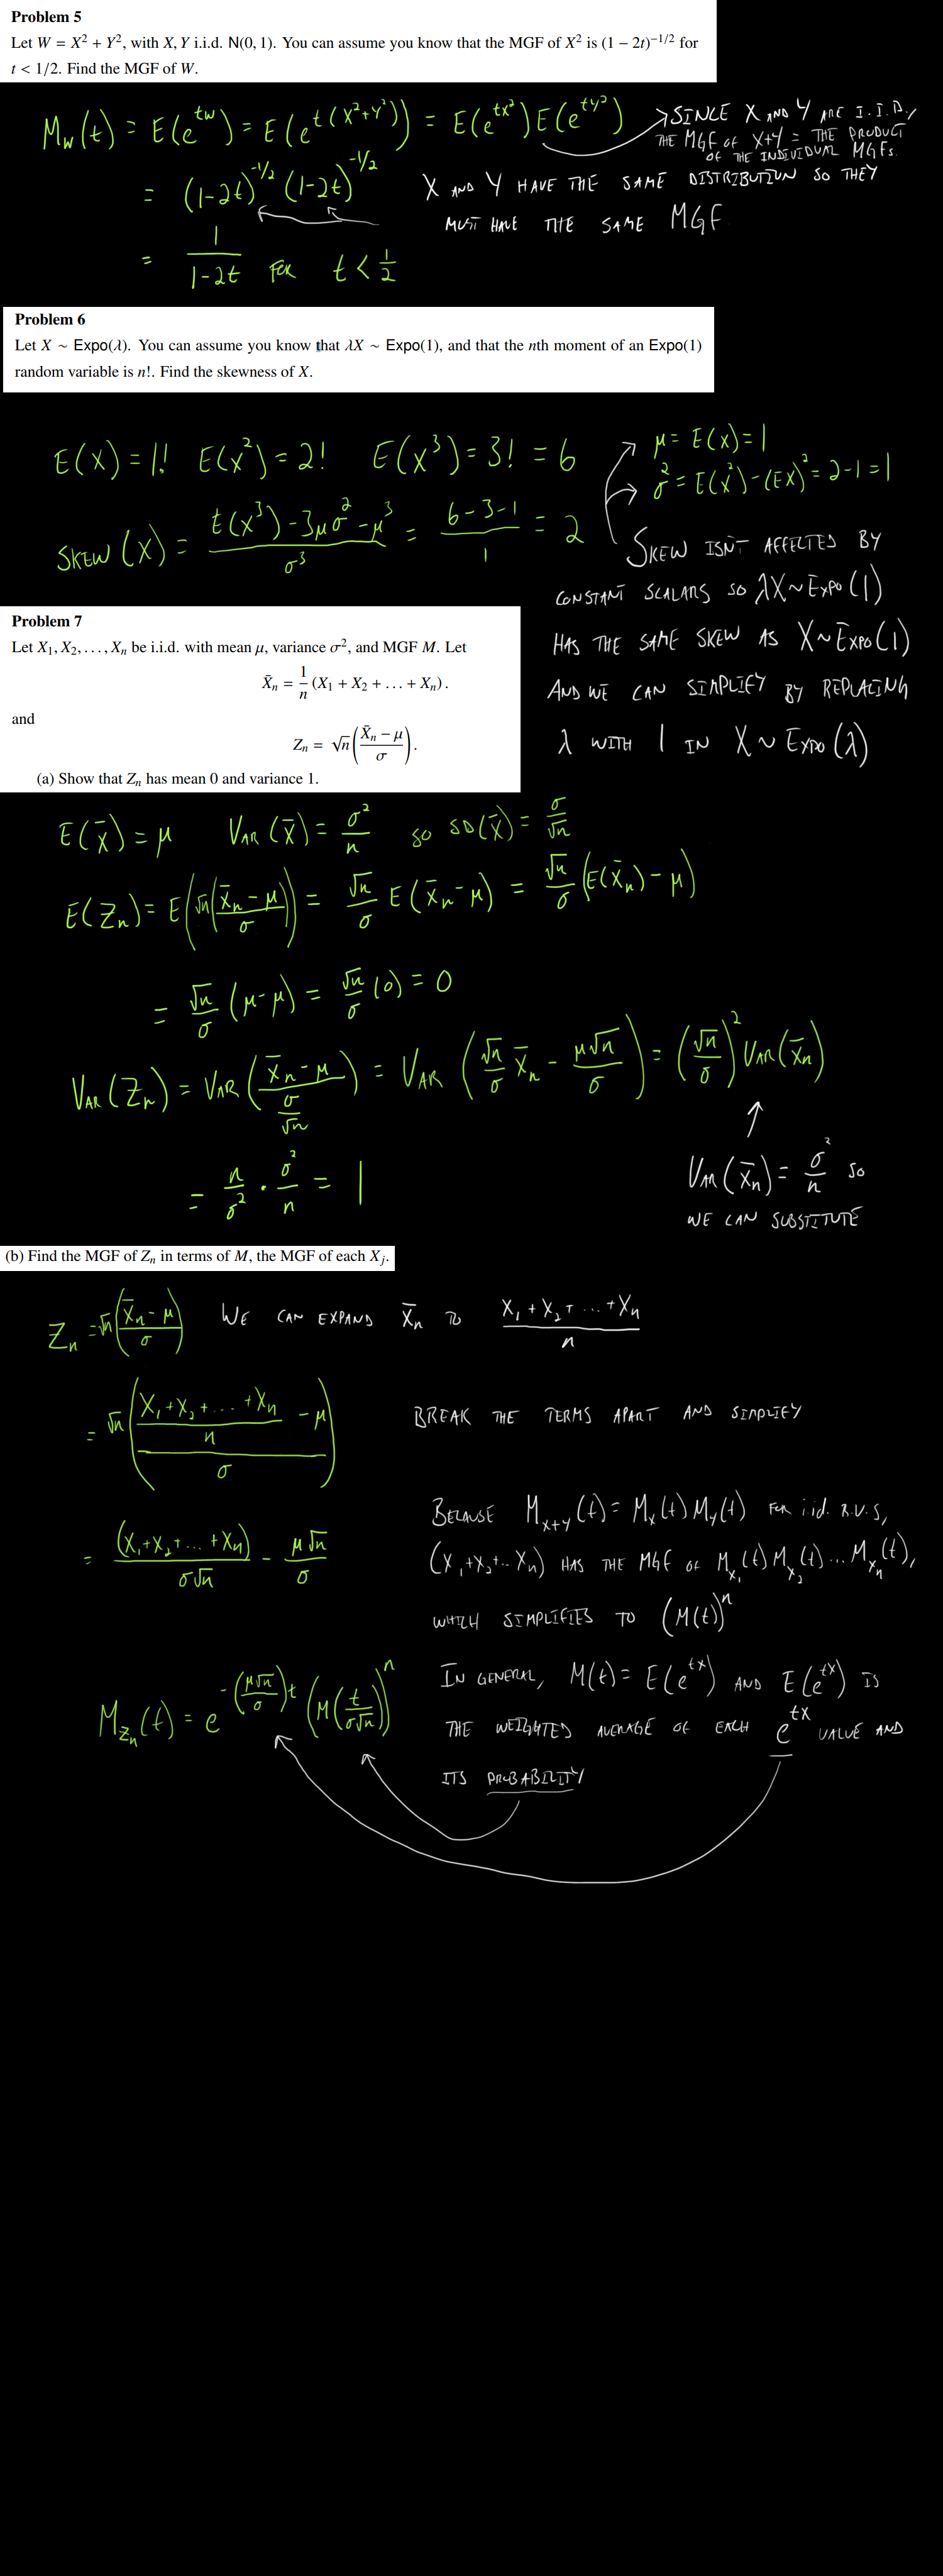 Problem 5
Let W = X² + Y², with X, Y i.i.d. N(0, 1). You can assume you know that the MGF of X² is (1 − 2t)^{−1/2} for
t < 1/2. Find the MGF of W.
M_W(t) = E(e^{tW}) = E(e^{t(X²+Y²)}) = E(e^{tX²})E(e^{tY²})
SINCE X AND Y ARE I.I.D.,
THE MGF OF X+Y = THE PRODUCT
OF THE INDIVIDUAL MGFs.
= (1-2t)^{-1/2} (1-2t)^{-1/2}
X AND Y HAVE THE SAME DISTRIBUTION SO THEY
MUST HAVE THE SAME MGF
= 1/(1-2t) FOR t < 1/2
Problem 6
Let X ∼ Expo(λ). You can assume you know that λX ∼ Expo(1), and that the nth moment of an Expo(1)
random variable is n!. Find the skewness of X.
E(X) = 1! E(X²) = 2! E(X³) = 3! = 6
μ = E(X) = 1
σ² = E(X²) - (EX)² = 2-1 = 1
SKEW(X) = (E(X³) - 3μσ² - μ³)/σ³ = (6-3-1)/1 = 2
SKEW ISN'T AFFECTED BY
CONSTANT SCALARS SO λX~EXPO(1)
HAS THE SAME SKEW AS X~EXPO(1)
AND WE CAN SIMPLIFY BY REPLACING
λ WITH 1 IN X ~ EXPO(λ)
Problem 7
Let X₁, X₂, . . . , Xₙ be i.i.d. with mean μ, variance σ², and MGF M. Let
X̄ₙ = 1/n (X₁ + X₂ + . . . + Xₙ).
and
Zₙ = √n((X̄ₙ − μ)/σ).
(a) Show that Zₙ has mean 0 and variance 1.
E(X̄) = μ VAR(X̄) = σ²/n SO SD(X̄) = σ/√n
E(Zₙ) = E(√n((X̄ₙ - μ)/σ)) = √n/σ E(X̄ₙ - μ) = √n/σ (E(X̄ₙ) - μ)
= √n/σ (μ-μ) = √n/σ (0) = 0
VAR(Zₙ) = VAR((X̄ₙ - μ)/(σ/√n)) = VAR(√n/σ X̄ₙ - μ√n/σ) = (√n/σ)² VAR(X̄ₙ)
= n/σ² · σ²/n = 1
VAR(X̄ₙ) = σ²/n SO
WE CAN SUBSTITUTE
(b) Find the MGF of Zₙ in terms of M, the MGF of each Xⱼ.
Zₙ = √n((X̄ₙ - μ)/σ) WE CAN EXPAND X̄ₙ TO (X₁ + X₂ + ... + Xₙ)/n
= √n(((X₁ + X₂ + ... + Xₙ)/n - μ)/σ) BREAK THE TERMS APART AND SIMPLIFY
= (X₁+X₂+ ... +Xₙ)/(σ√n) - μ√n/σ
BECAUSE M_{X+Y}(t) = M_X(t) M_Y(t) FOR i.i.d. R.V.S,
(X₁+X₂+... Xₙ) HAS THE MGF OF M_{X₁}(t) M_{X₂}(t) ... M_{Xₙ}(t),
WHICH SIMPLIFIES TO (M(t))ⁿ
M_{Zₙ}(t) = e^{-(μ√n/σ)t} (M(t/(σ√n)))ⁿ
IN GENERAL, M(t) = E(e^{tX}) AND E(e^{tX}) IS
THE WEIGHTED AVERAGE OF EACH e^{tX} VALUE AND
ITS PROBABILITY